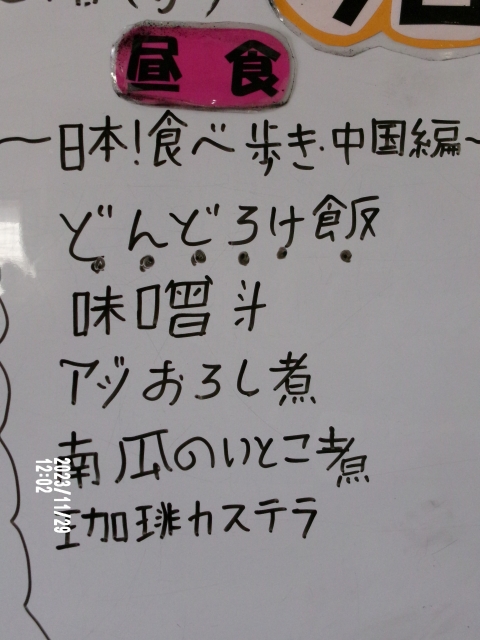 昼食
〜日本!食べ歩き·中国編〜
どんどろけ飯
味噌汁
アジおろし煮
南瓜のいとこ煮
珈琲カステラ
2023/11/29
12:02